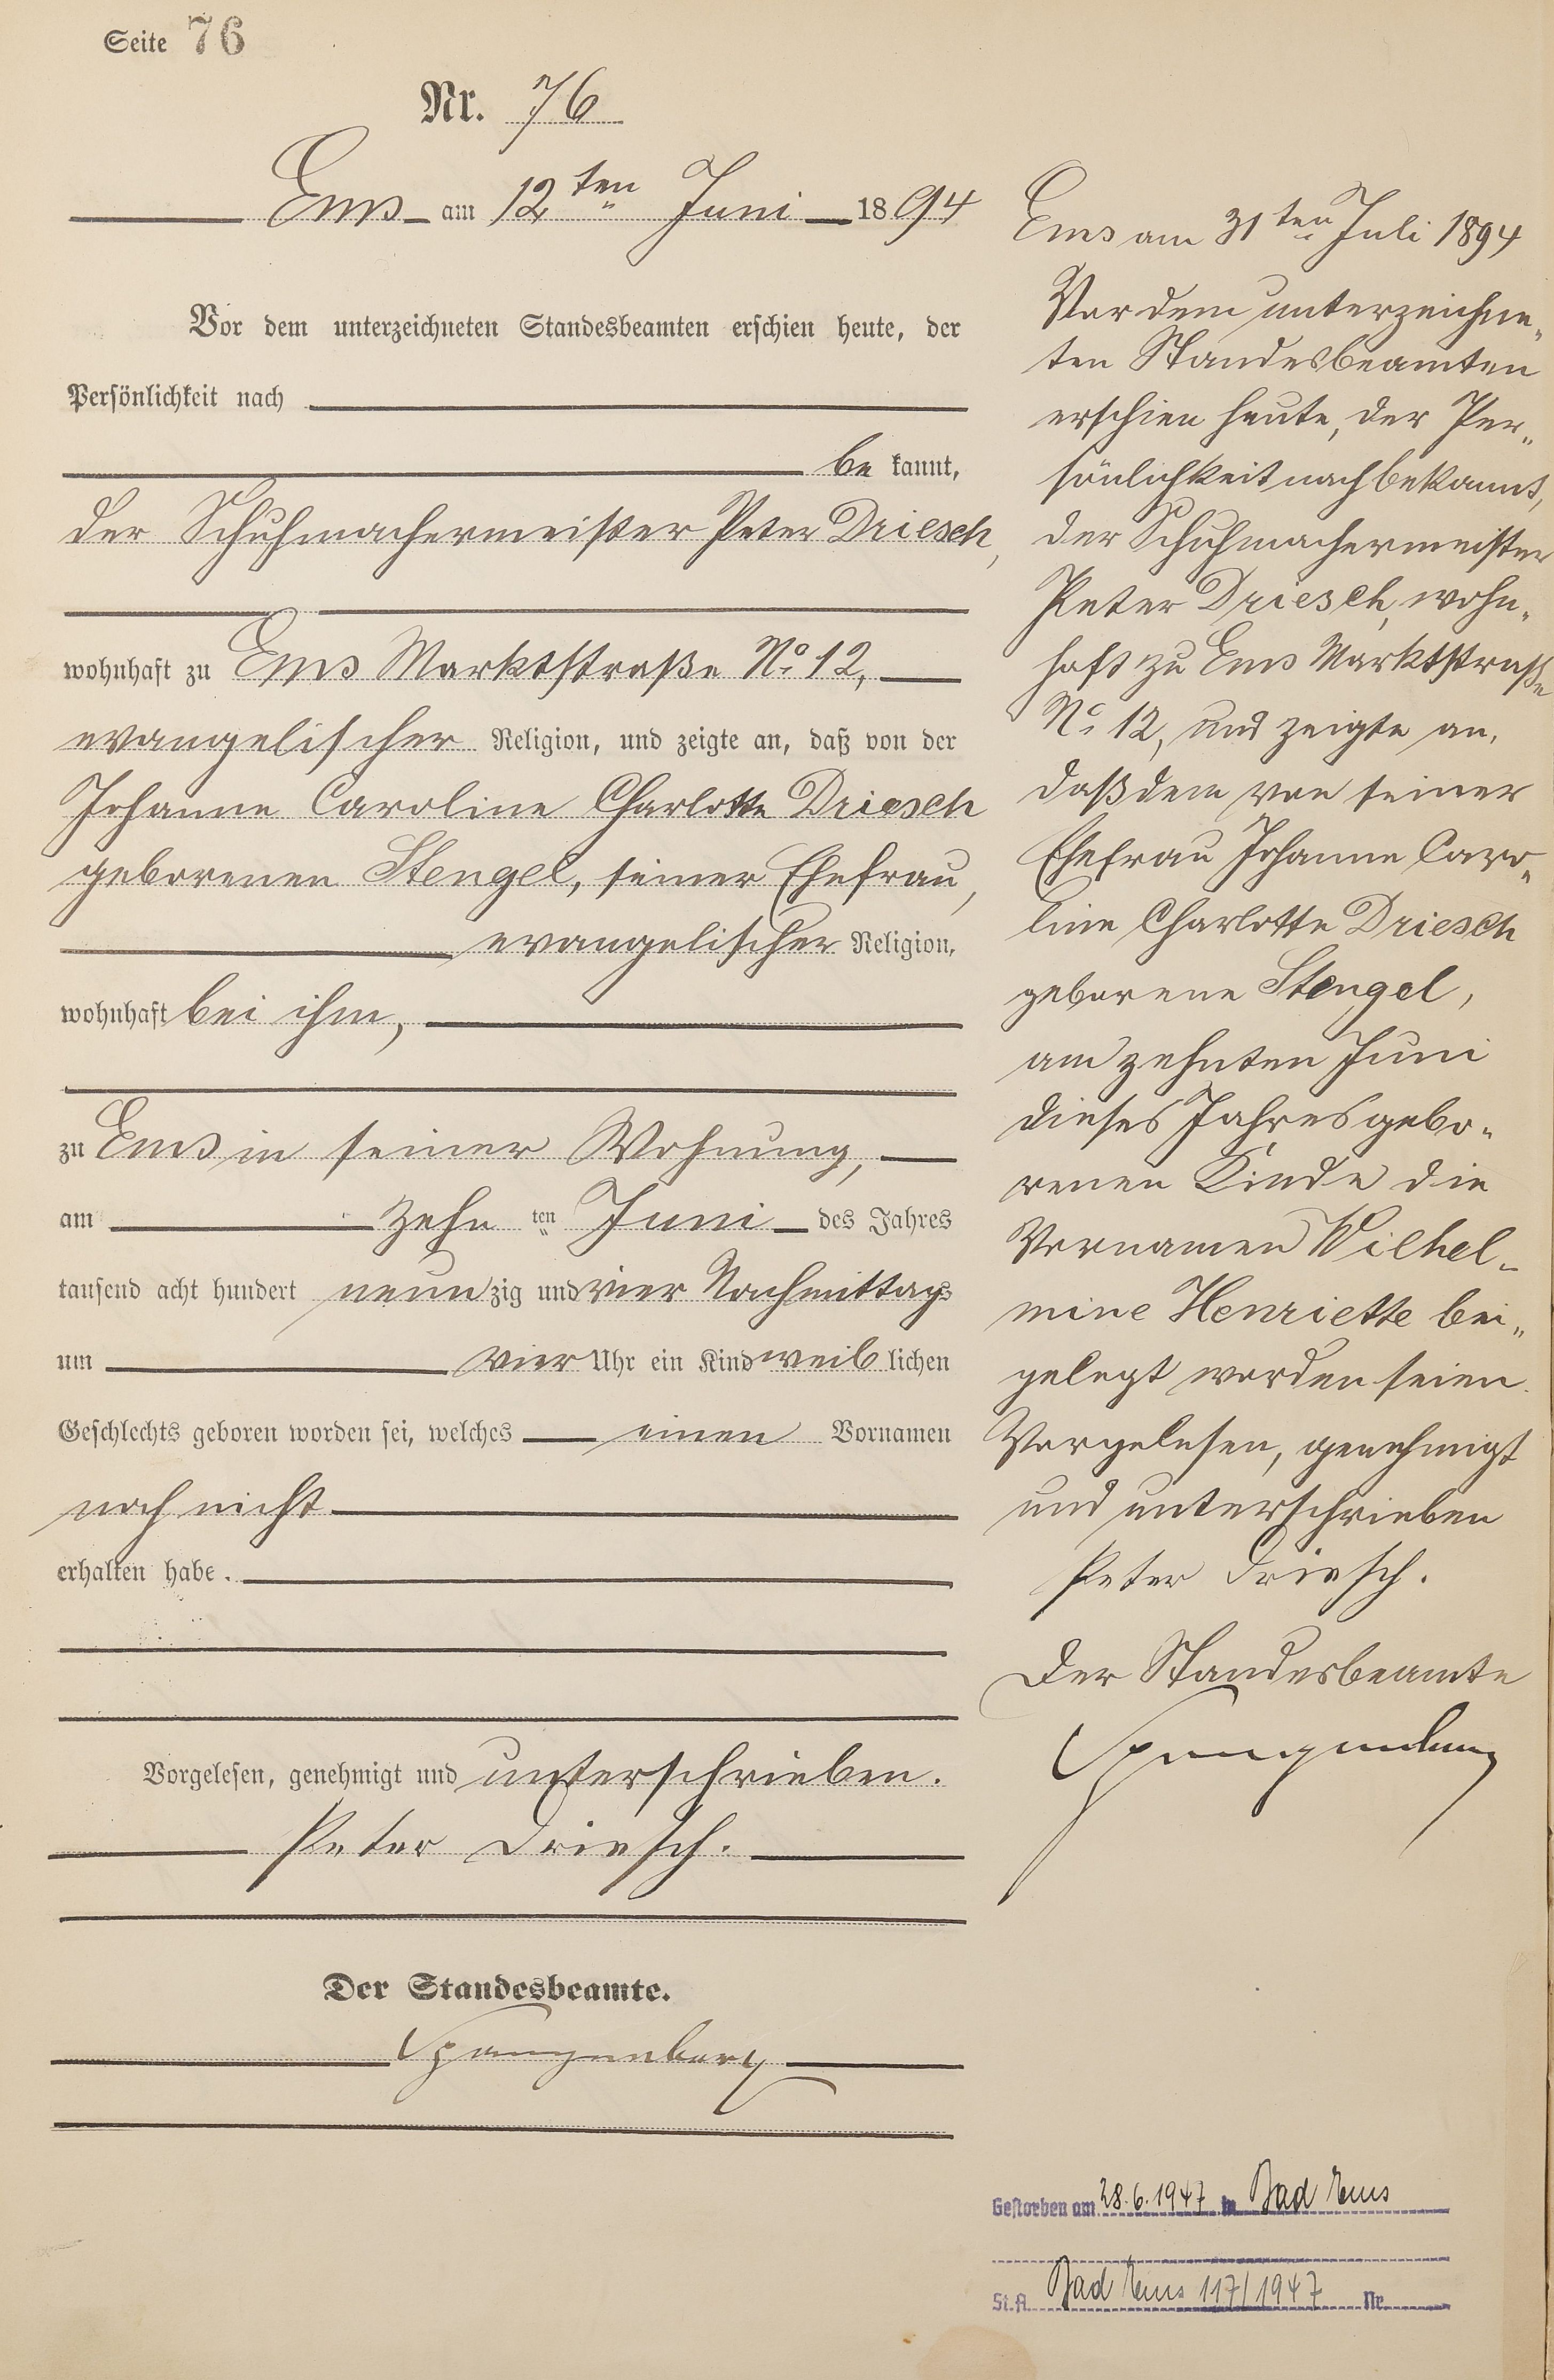 Seite 76
Nr. 76
Ems am 12ten Juni 1894
Vor dem unterzeichneten Standesbeamten erschien heute, der
Persönlichkeit nach
bekannt,
der Schuhmachermeister Peter Driesch,
wohnhaft zu Ems Marktstraße No. 12,
evangelischer Religion, und zeigte an, daß von der
Johanne Caroline Charlotte Driesch
geborenen Stengel, seiner Ehefrau,
evangelischer Religion,
wohnhaft bei ihm,
zu Ems in seiner Wohnung,
am zehnten Juni des Jahres
tausend acht hundert neunzig und vier Nachmittags
um vier Uhr ein Kind weiblichen
Geschlechts geboren worden sei, welches einen Vornamen
noch nicht
erhalten habe.
Vorgelesen, genehmigt und unterschrieben.
Peter Driesch.
Der Standesbeamte.
Spangenberg
Ems am 31ten Juli 1894
Vor dem unterzeichne-
ten Standesbeamten
erschien heute, der Per-
sönlichkeit nach bekannt,
der Schuhmachermeister
Peter Driesch, wohn-
haft zu Ems Marktstraße
No. 12, und zeigte an,
daß dem von seiner
Ehefrau Johanne Caro-
line Charlotte Driesch
geborene Stengel,
am zehnten Juni
dieses Jahres gebo-
renen Kinde die
Vornamen Wilhel-
mine Henriette bei-
gelegt worden seien.
Vorgelesen, genehmigt
und unterschrieben
Peter Driesch.
Der Standesbeamte
Spangenberg
Gestorben am 28.6.1947 in Bad Ems
St.A. Bad Ems 117/1947 Nr.